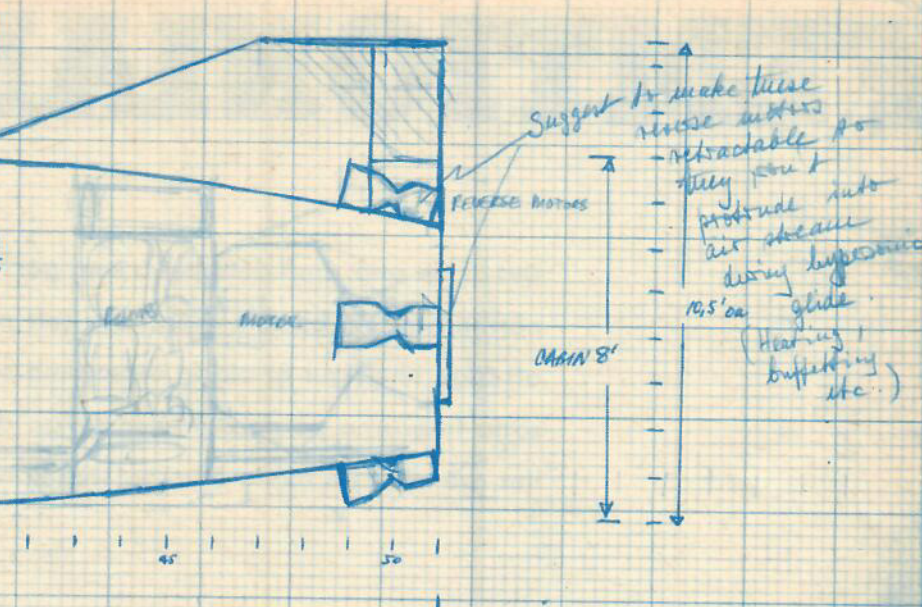 Suggest to make these
reverse motors
retractable so
they don't
protrude into
air stream
during hypersonic
glide.
(Heating,
buffeting
etc.)
REVERSE MOTORS
MOTOR
10,5' oa
CABIN 8'
45
50